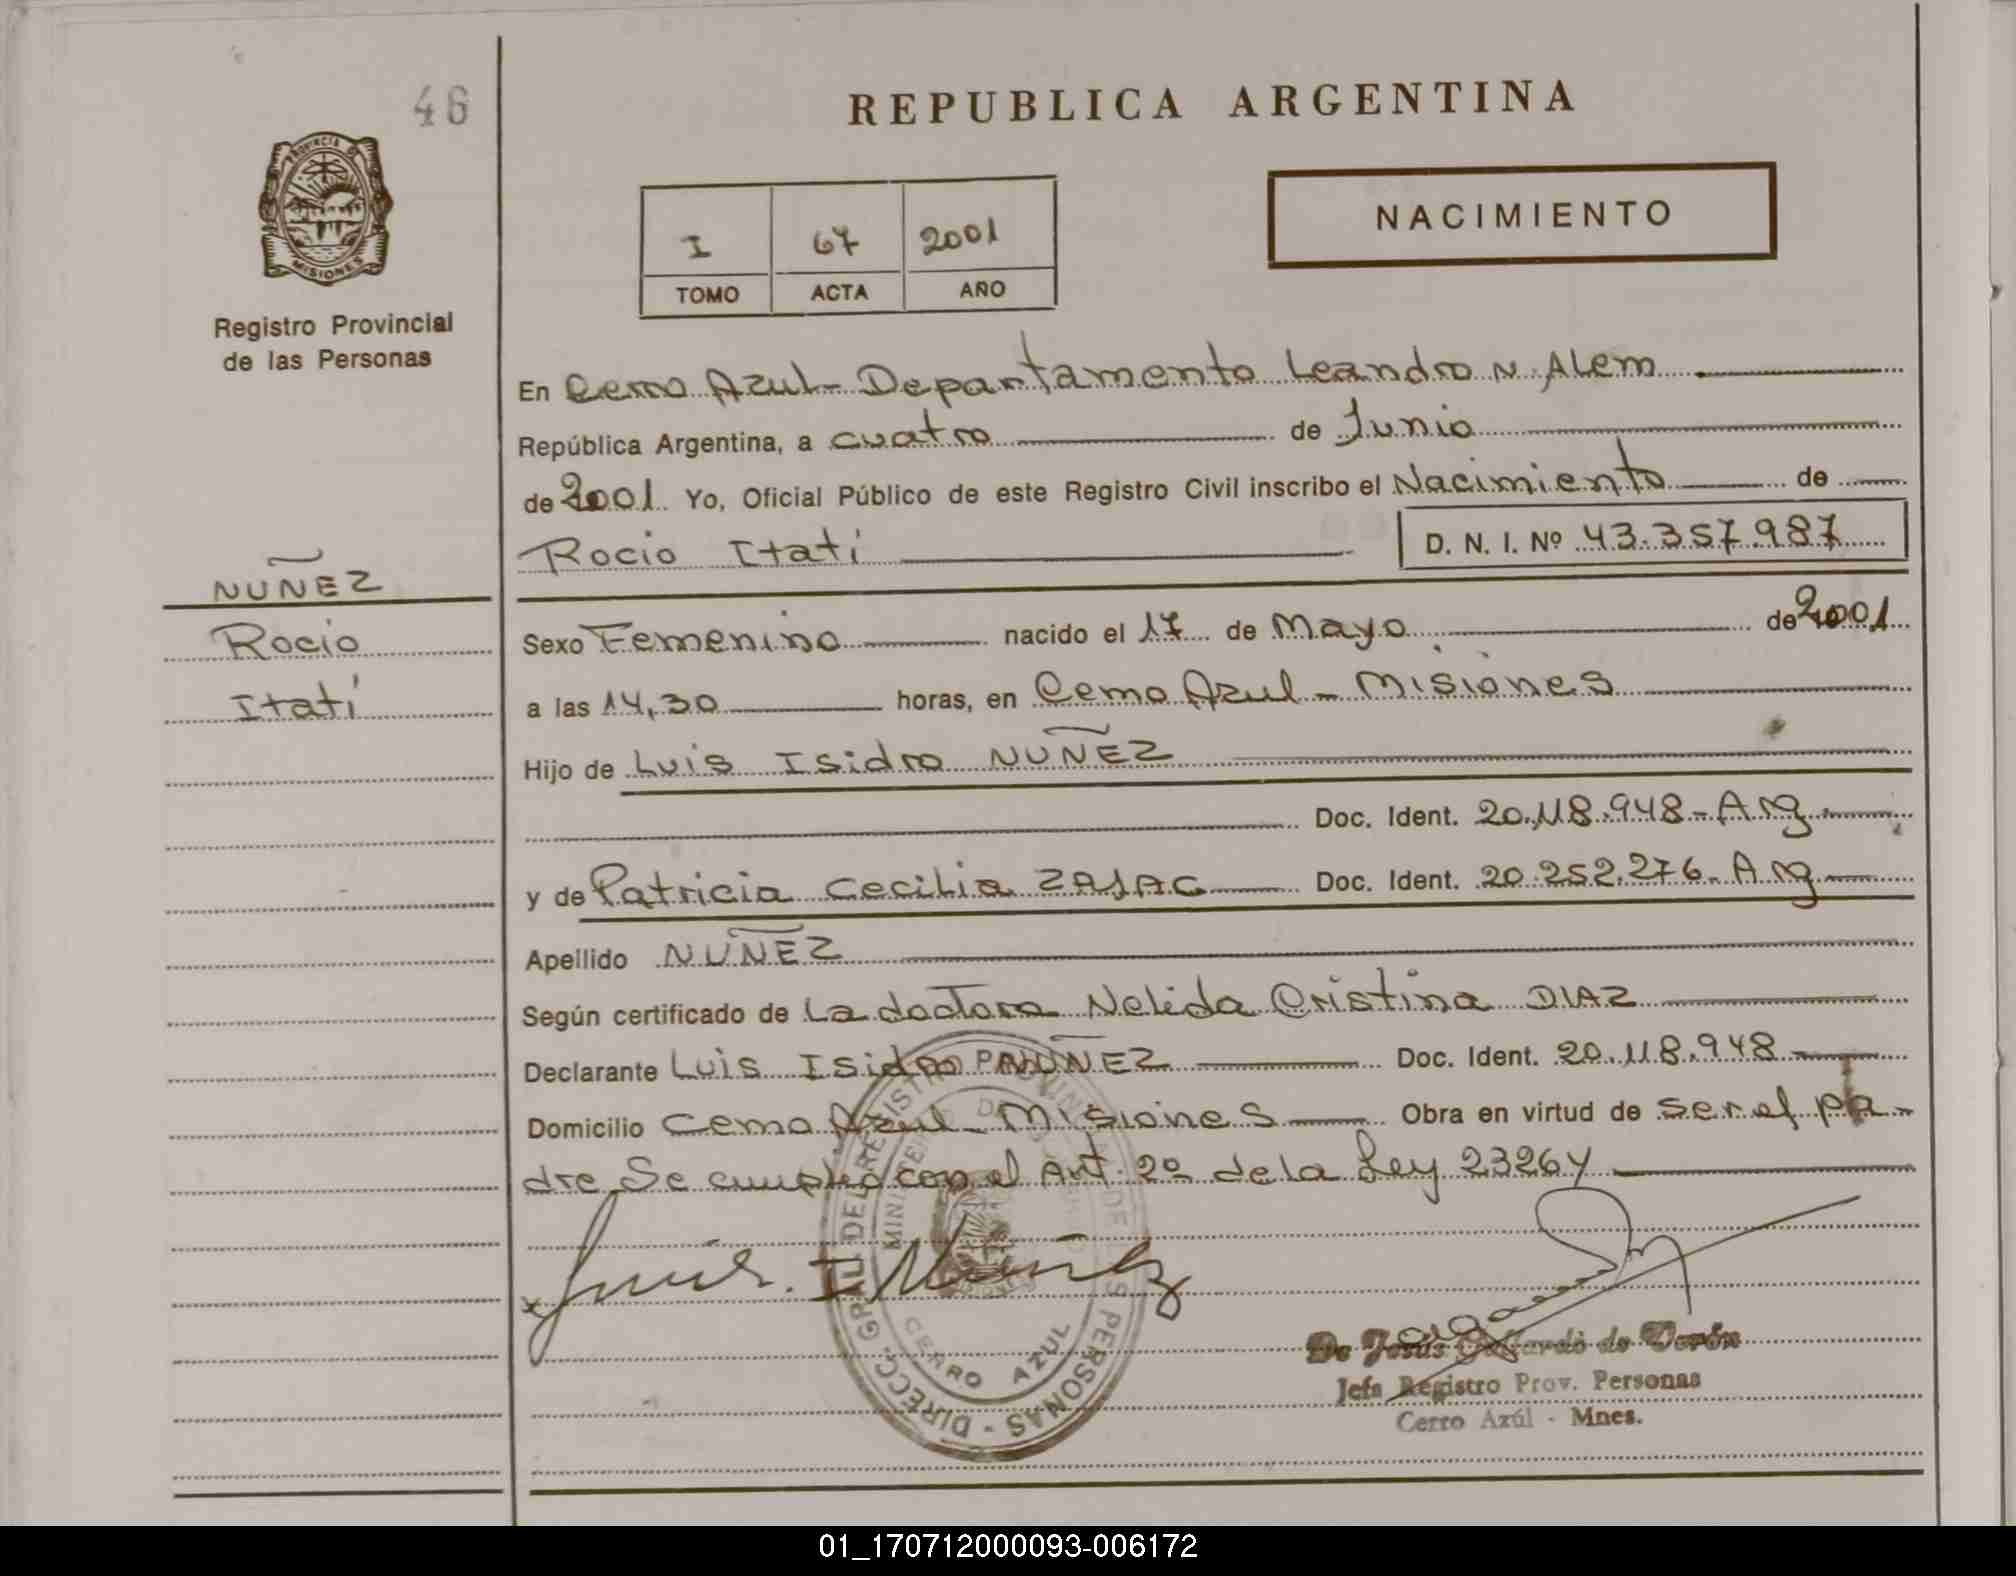 46
REPUBLICA ARGENTINA
PROVINCIA DE
MISIONES
I 67 2001
TOMO ACTA AÑO
NACIMIENTO
Registro Provincial
de las Personas
En Cerro Azul - Departamento Leandro N. Alem
República Argentina, a cuatro de Junio
de 2001 Yo, Oficial Público de este Registro Civil inscribo el Nacimiento de
Rocio Itatí D. N. I. Nº 43.357.987
NUÑEZ
Rocio
Itatí
Sexo Femenino nacido el 17 de Mayo de 2001
a las 14,30 horas, en Cerro Azul - Misiones
Hijo de Luis Isidro NUÑEZ
Doc. Ident. 20.118.948 - Arg
y de Patricia Cecilia ZAJAC Doc. Ident. 20.252.276 - Arg
Apellido NUÑEZ
Según certificado de La doctora Nelida Cristina DIAZ
Declarante Luis Isidro NUÑEZ Doc. Ident. 20.118.948
Domicilio Cerro Azul - Misiones Obra en virtud de ser el pa-
dre Se cumplió con el Art. 2º de la Ley 23264
Luis. I Nuñez
DIRECC. GRAL. DEL REGISTRO PROVINCIAL DE LAS PERSONAS
CERRO AZUL
De Jesús Gallardo de Verón
Jefa Registro Prov. Personas
Cerro Azúl - Mnes.
01_170712000093-006172